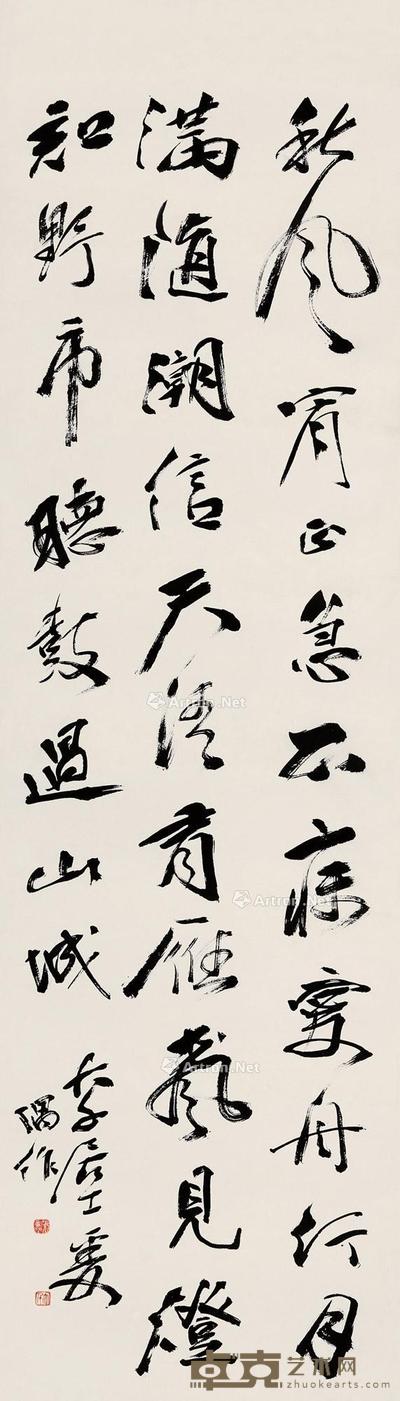 秋風宵正急不寐愛舟行月
滿隨潮信天清有雁聲見燈
知野市聽鼓過山城
大千居士爰
偶作
Artron.Net
Artron.Net
Artron.Net
卓克艺术网
zhuokearts.com